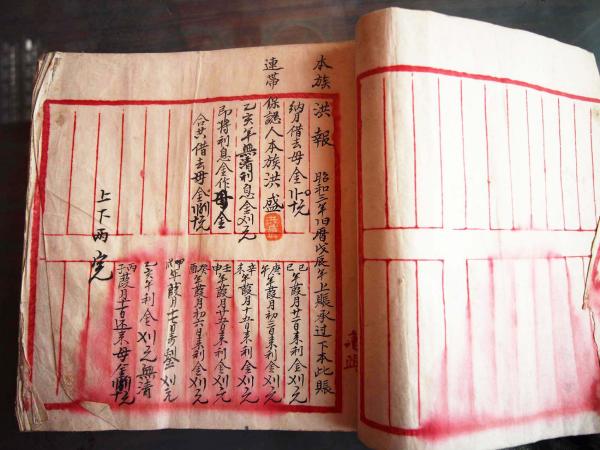 本族 洪報 昭和三年旧曆戊辰年上賬承过下本此賬
借去母金
連帶保認人本族洪盛
乙亥年無清利息金刈元
即將利息金作母金
合共借去母金
上下兩完
己巳年葭月廿一日来利金刈元
庚午年葭月初三日来利金刈元
辛未年葭月十五日来利金刈元
壬申年葭月廿五日来利金刈元
癸酉年葭月初六日来利金刈元
甲戌年葭月 刈元
乙亥年利金刈元無清
丙子葭月十一日还来母金